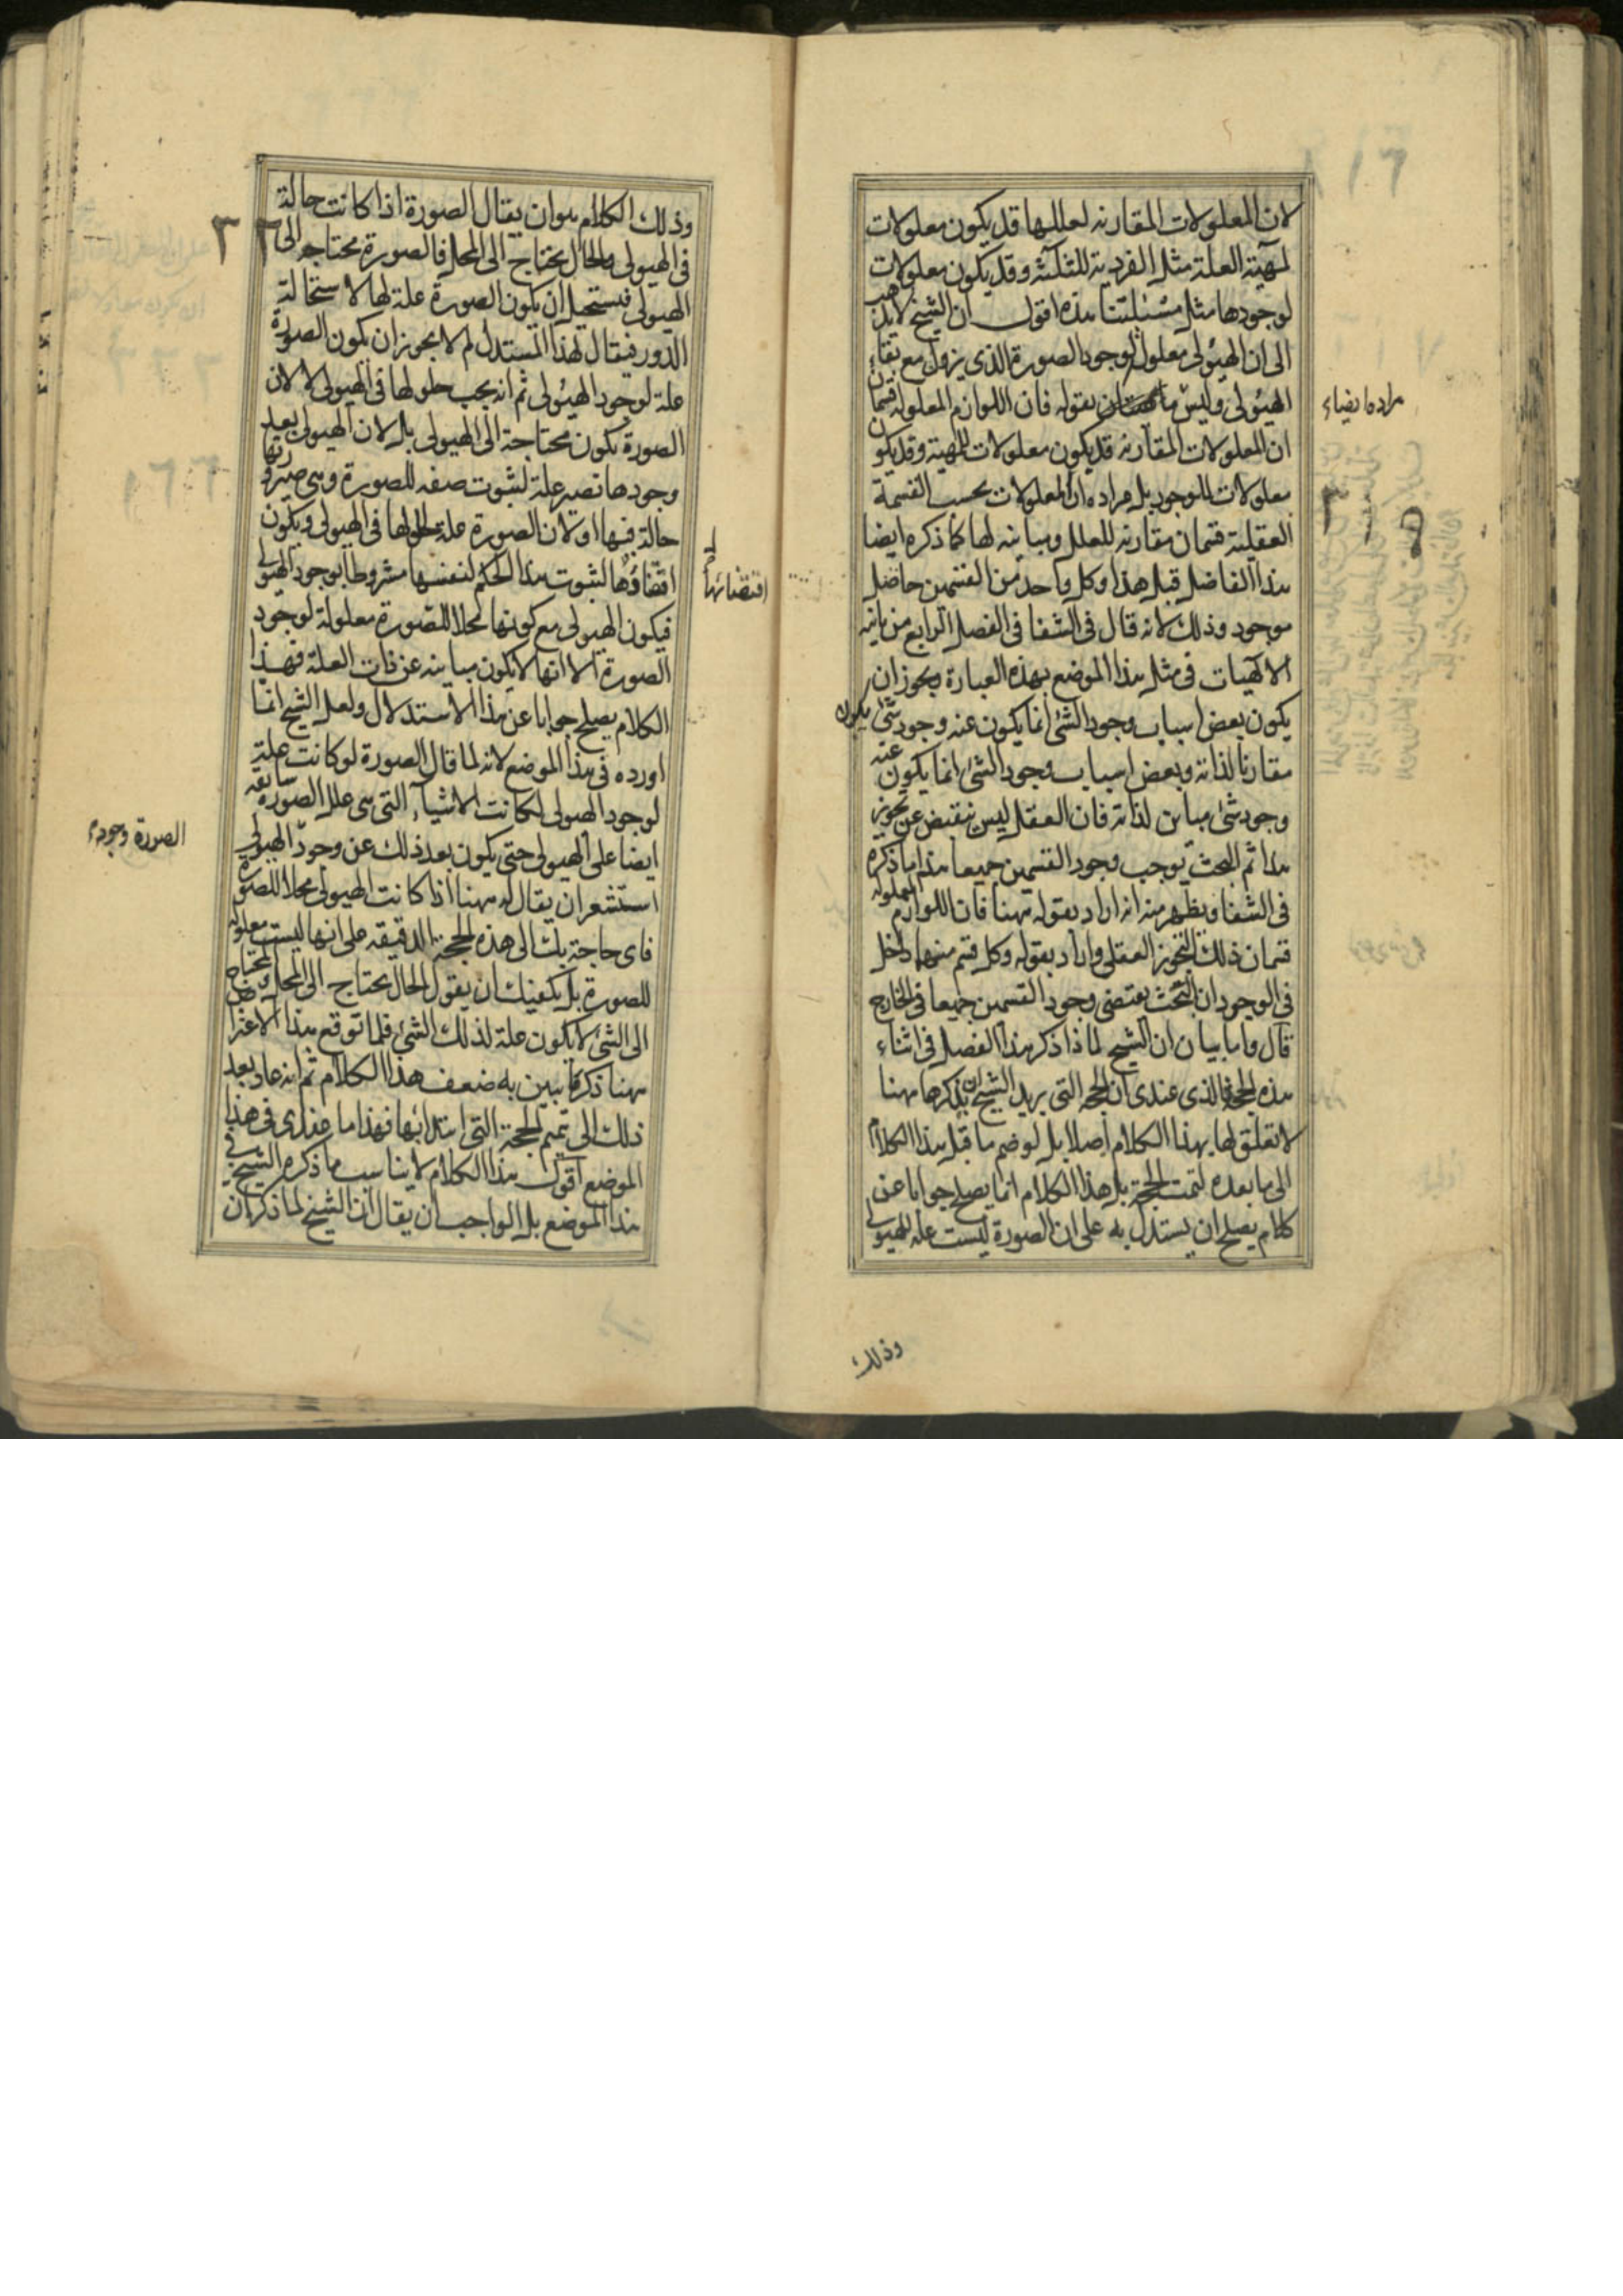 لان المعلولات المقارنه لعللها قد يكون معلولات
لمهية العلة مثل الفردية للثلثة وقد يكون معلولات
لوجودها مثل مسئلتنا هذه اقول ان الشيخ لا يذهب
الى ان الهيولى معلول لوجود الصورة الذى يزول مع بقاء
الهيولى وليس بقوله فان اللوازم المعلوله قسمان
ان المعلولات المقارنه قد يكون معلولات للمهية وقد يكون
معلولات للوجود بل مراده ان المعلولات بحسب القسمة
العقلية قسمان مقارنه للعلل ومباينه لها كما ذكره ايضا
هذا الفاضل قبل هذا وكل واحد من القسمين حاصل
موجود وذلك لانه قال فى الشفا فى الفصل الرابع من ثانية
الالهيات فى مثل هذا الموضع بهذه العبارة ويجوز ان
يكون بعض اسباب وجود الشئ انما يكون عنه وجود شئ يكون
مقارنا لذاته وبعض اسباب وجود الشئ انما يكون عنه
وجود شئ مباين لذاته فان العقل ليس ينقبض عن تجويز
هذا ثم البحث يوجب وجود القسمين جميعا هذا ما ذكره
فى الشفا ويظهر منه انه اراد بقوله ههنا فان اللوازم المعلوله
قسمان ذلك التجويز العقلى واراد بقوله وكل قسم منهما داخل
فى الوجود ان البحث يقتضى وجود القسمين جميعا فى الخارج
قال واما بيان ان الشيخ لماذا ذكر هذا الفصل فى اثناء
هذه الحجة فالذى عندى ان الحجة التى يريد الشيخ ان يذكرها ههنا
لا تعلق لها بهذا الكلام اصلا بل لو ضم ما قبل هذا الكلام
الى ما بعده لتمت الحجة بل هذا الكلام انما يصلح جوابا عن
كلام يصلح ان يستدل به على ان الصورة ليست علة للهيولى
وذلك
وذلك الكلام هو ان يقال الصورة اذا كانت حالة
فى الهيولى والحال يحتاج الى المحل فالصورة محتاجه الى
الهيولى فيستحيل ان يكون الصورة علة لها لاستحالة
الدور فيقال لهذا المستدل لم لا يجوز ان يكون الصورة
علة لوجود الهيولى ثم انه يجب حلولها فى الهيولى لا لان
الصورة يكون محتاجة الى الهيولى بل لان الهيولى بعد
وجودها تصير علة لثبوت صفه للصورة وهى صيرورتها
حالة فيها او لان الصورة علة لحلولها فى الهيولى ويكون
اقتضاؤها لثبوت هذا الحكم لنفسها مشروطا بوجود الهيولى
اقتضائها
فيكون الهيولى مع كونها محلا للصورة معلولة لوجود
الصورة الا انها لا يكون مباينه عن ذات العلة فهذا
الكلام يصلح جوابا عن هذا الاستدلال ولعل الشيخ انما
اورده فى هذا الموضع لانه لما قال الصورة لو كانت علة
لوجود الهيولى لكانت الاشياء التى هى علل الصورة سابقه
ايضا على الهيولى حتى يكون بعد ذلك عن وجود الهيولى
الصورة وجود
استشعر ان يقال له ههنا اذا كانت الهيولى محلا للصورة
فاى حاجة بك الى هذه الحجة الدقيقه على انها ليست معلوله
للصورة بل يكفيك ان يقول الحال يحتاج الى المحل والمحتاج
الى الشئ لا يكون علة لذلك الشئ فلما توقع هذا الاعتراض
ههنا ذكر ما يبين به ضعف هذا الكلام ثم انه عاد بعد
ذلك الى تتميم الحجة التى ابتدا بها فهذا ما عندى فى هذا
الموضع اقول هذا الكلام لا يناسب ما ذكره الشيخ فى
هذا الموضع بل الواجب ان يقال ان الشيخ لما ذكر ان